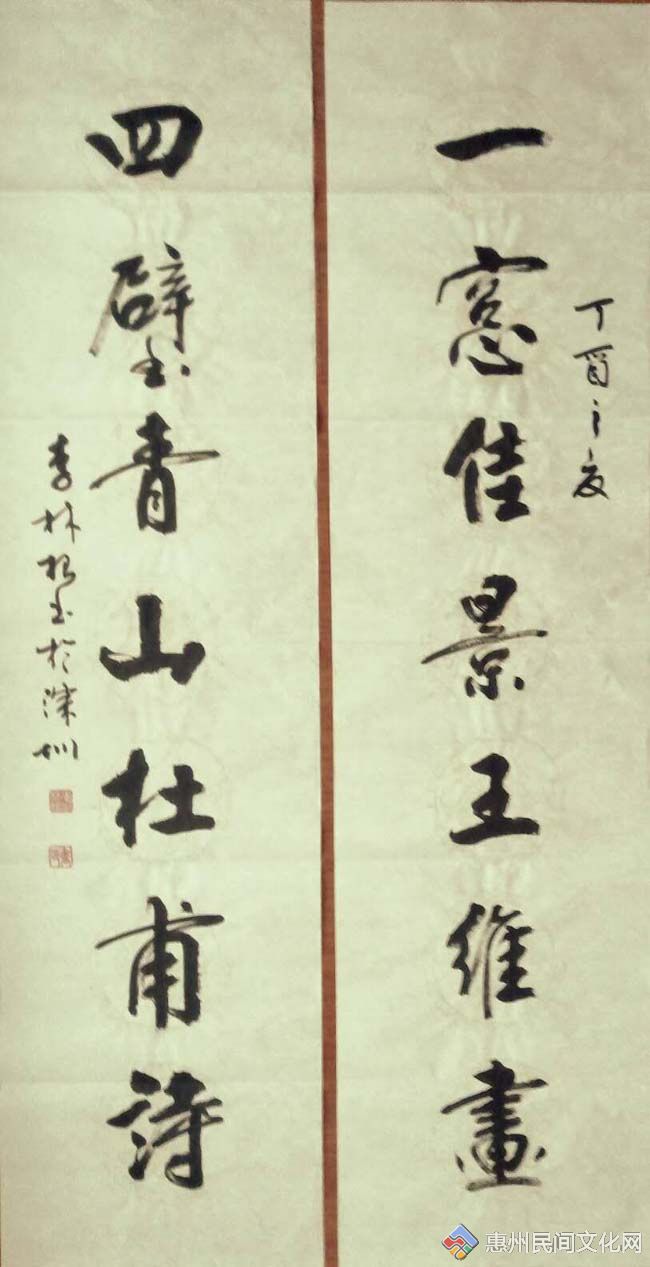 丁酉之夏
一窓佳景王維畫
四壁青山杜甫詩
李林书於深圳
惠州民间文化网